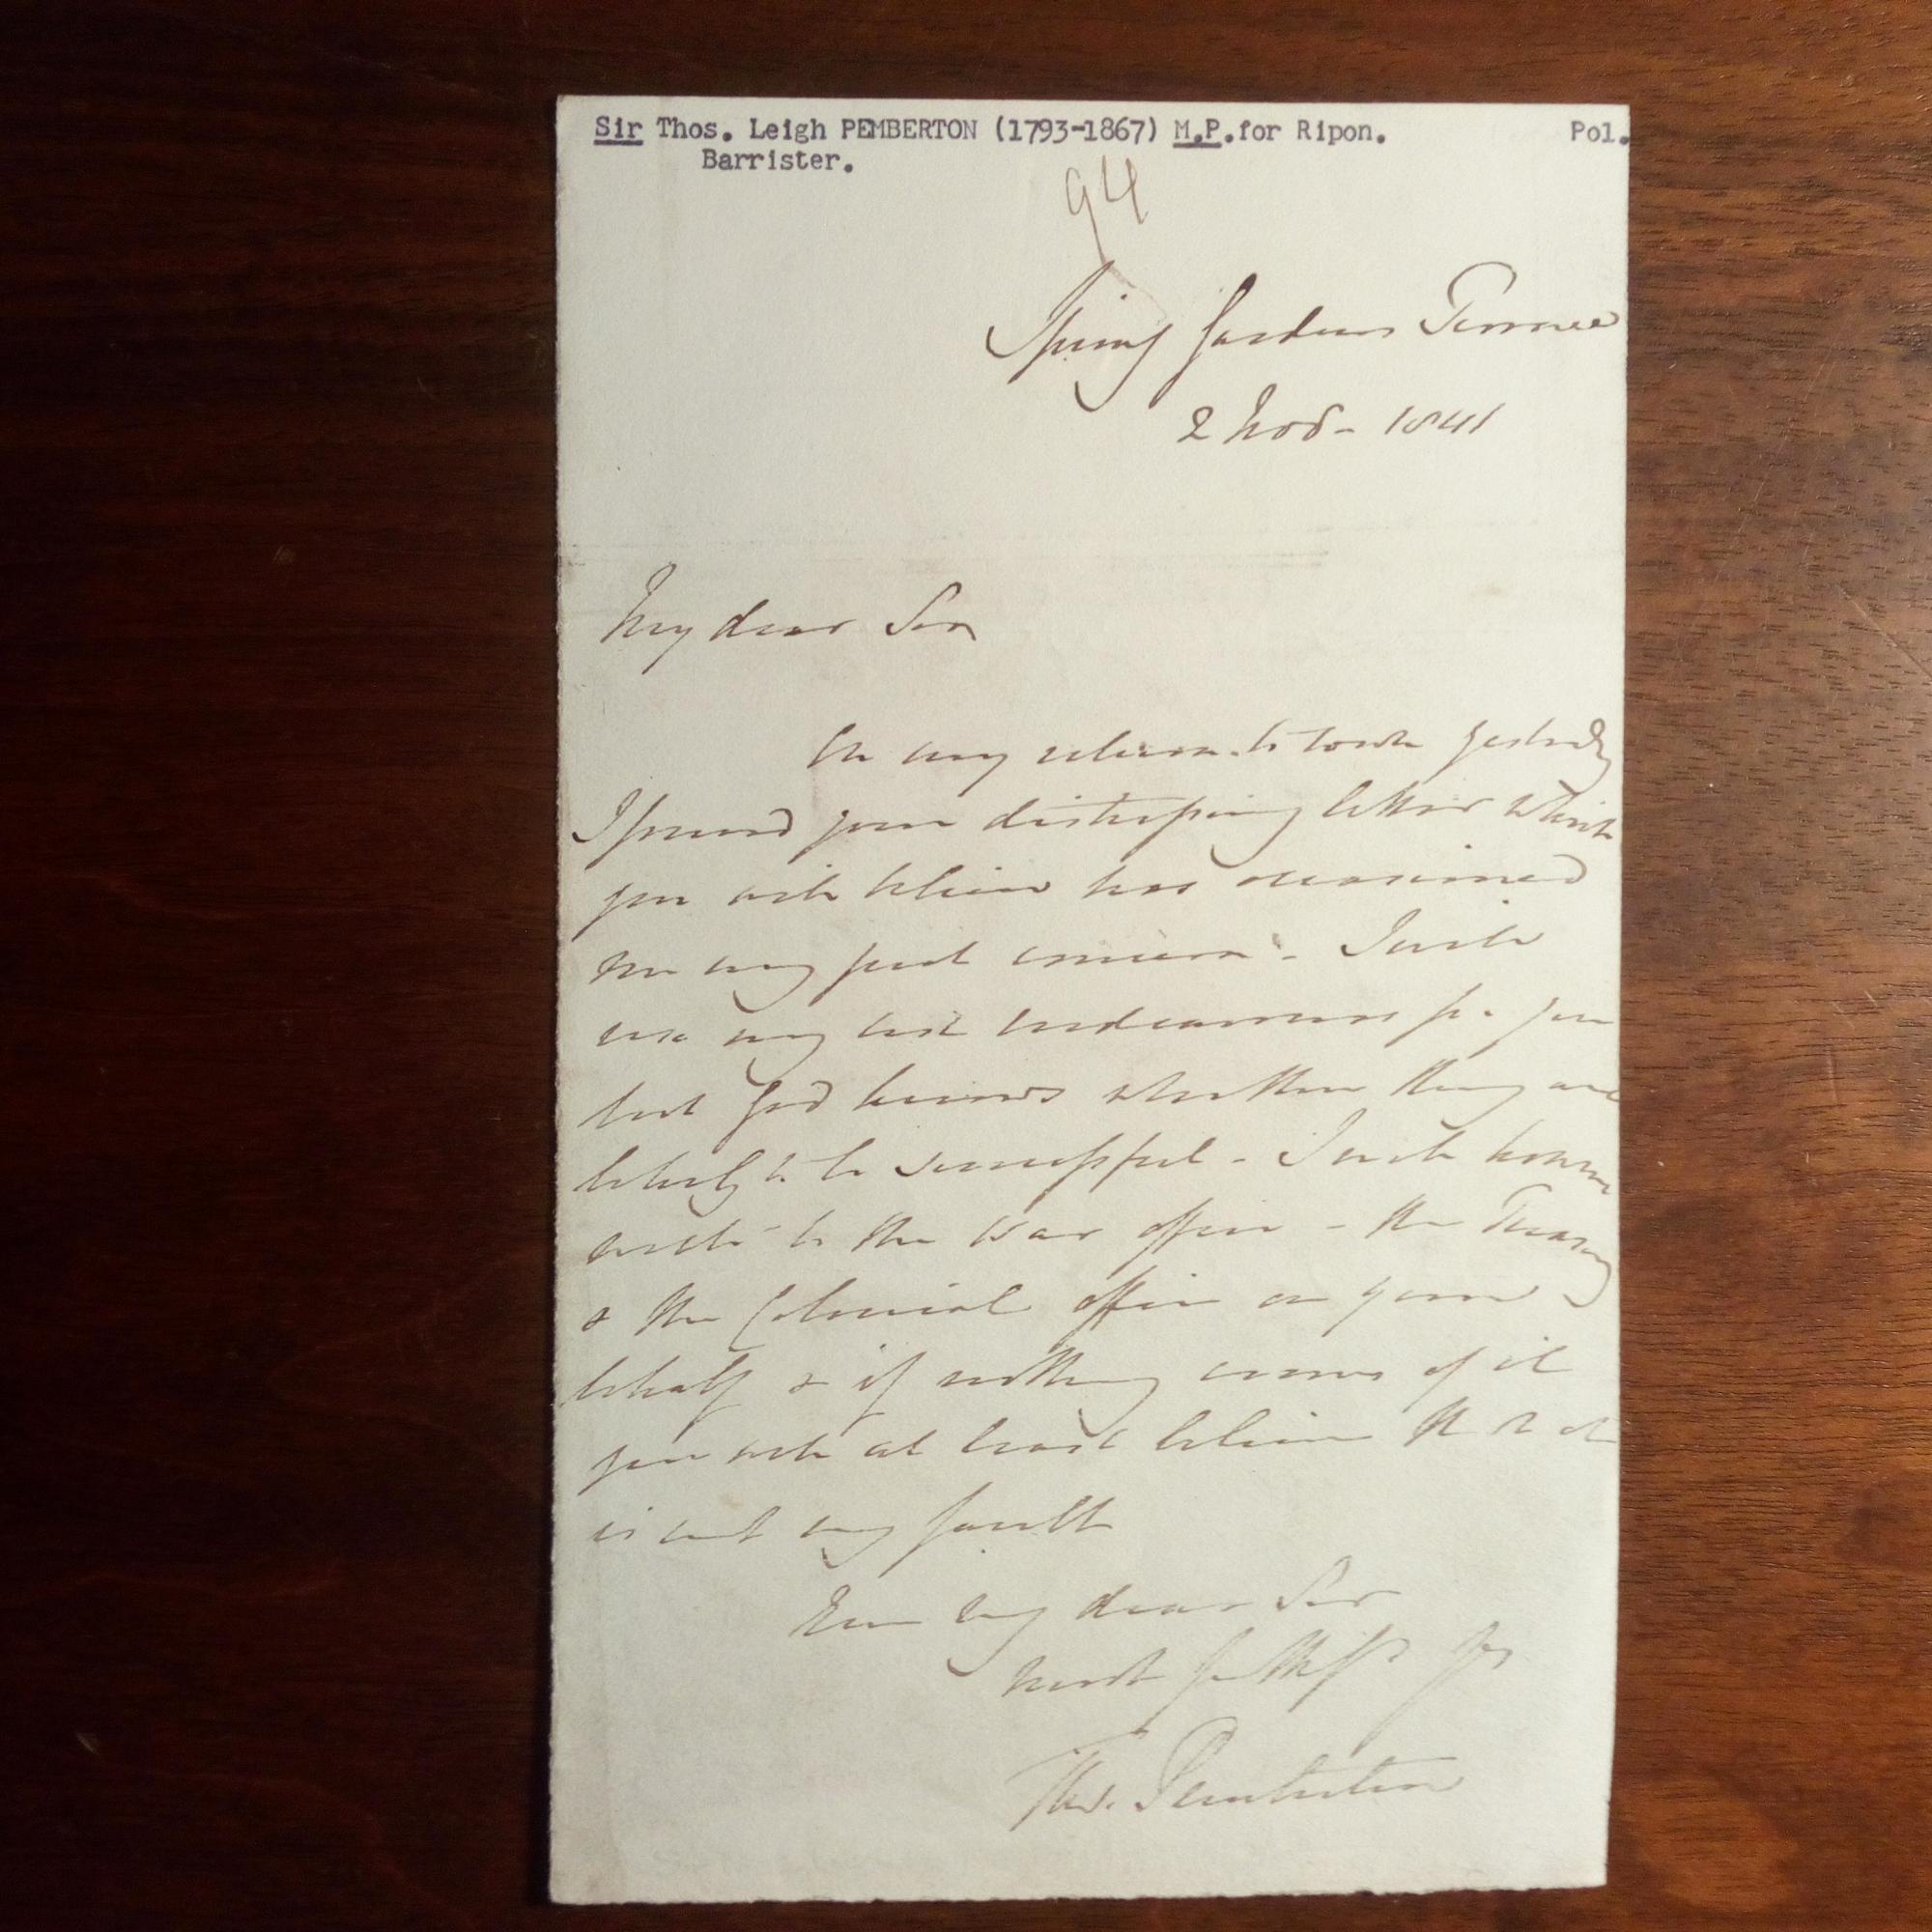 Sir Thos. Leigh PEMBERTON (1793-1867) M.P.for Ripon. Pol.
Barrister.
94
Spring Gardens Terrace
2 Nov - 1841
My dear Sir
On my return to town yesterday
I found your distressing letter which
you will believe has occasioned
me very great concern - I will
use my best endeavours for you
but God knows whether they are
likely to be successful - I will however
write to the War office - the Treasury
& the Colonial office on your
behalf & if nothing comes of it
you will at least believe that it
is not my fault
Ever my dear Sir
most faithfy yrs
Thos. Pemberton